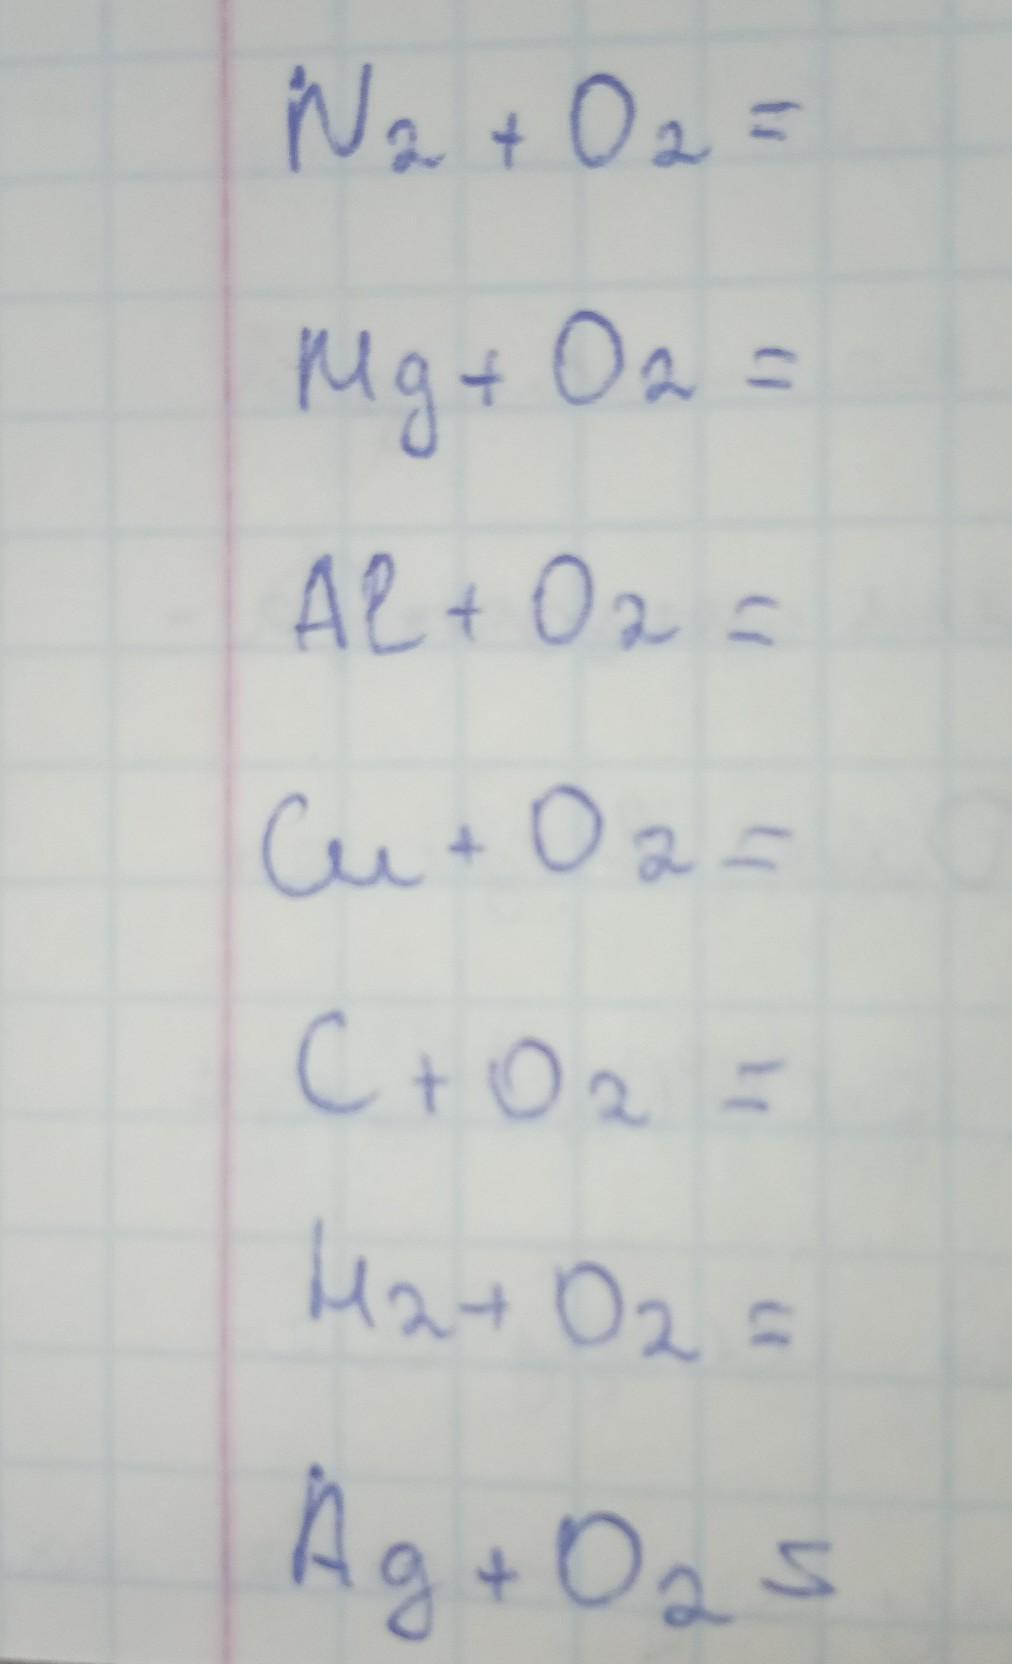 N₂ + O₂ =
Mg + O₂ =
Al + O₂ =
Cu + O₂ =
C + O₂ =
H₂ + O₂ =
Ag + O₂ =